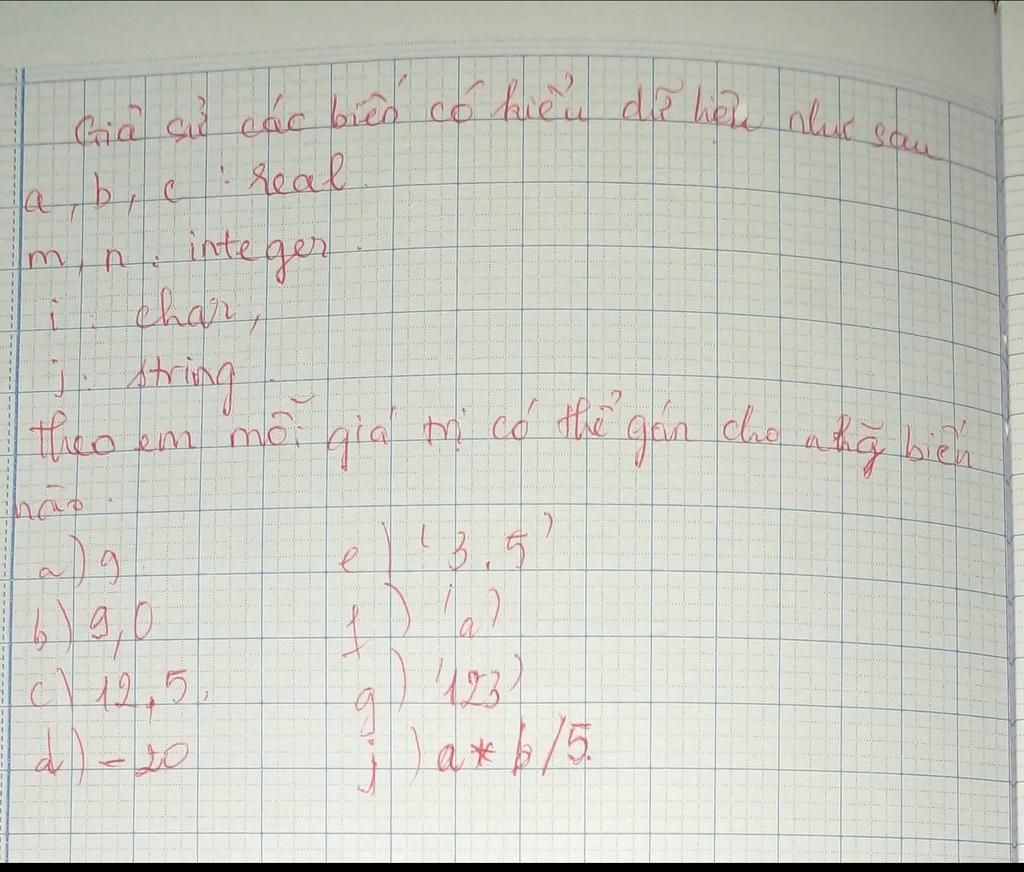 Giả sử các biến có kiểu dữ liệu như sau
a, b, c : real.
m, n : integer.
i : char,
j : string
theo em mỗi giá trị có thể gán cho những biến
nào.
a) 9 e) '3.5'
b) 9,0 f) 'a'
c) 12,5, g) '123'
d) -20 j) a*b/5.